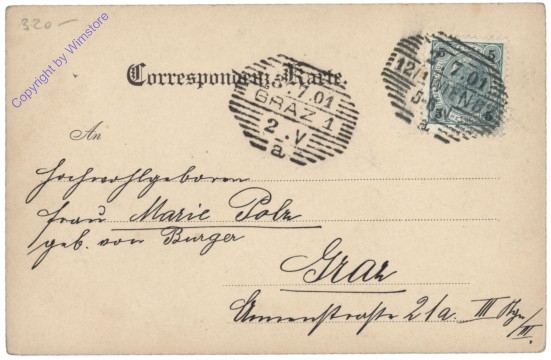 320-
Copyright by Wimstore
Correspondenz-Karte.
7.01
GRAZ 1
2.V
a
7.01
12/1 WIEN
5-6
a
5
5
An
Hochwohlgeboren
Frau Marie Polz
geb. von Burger
Graz
Annenstraße 21a. III